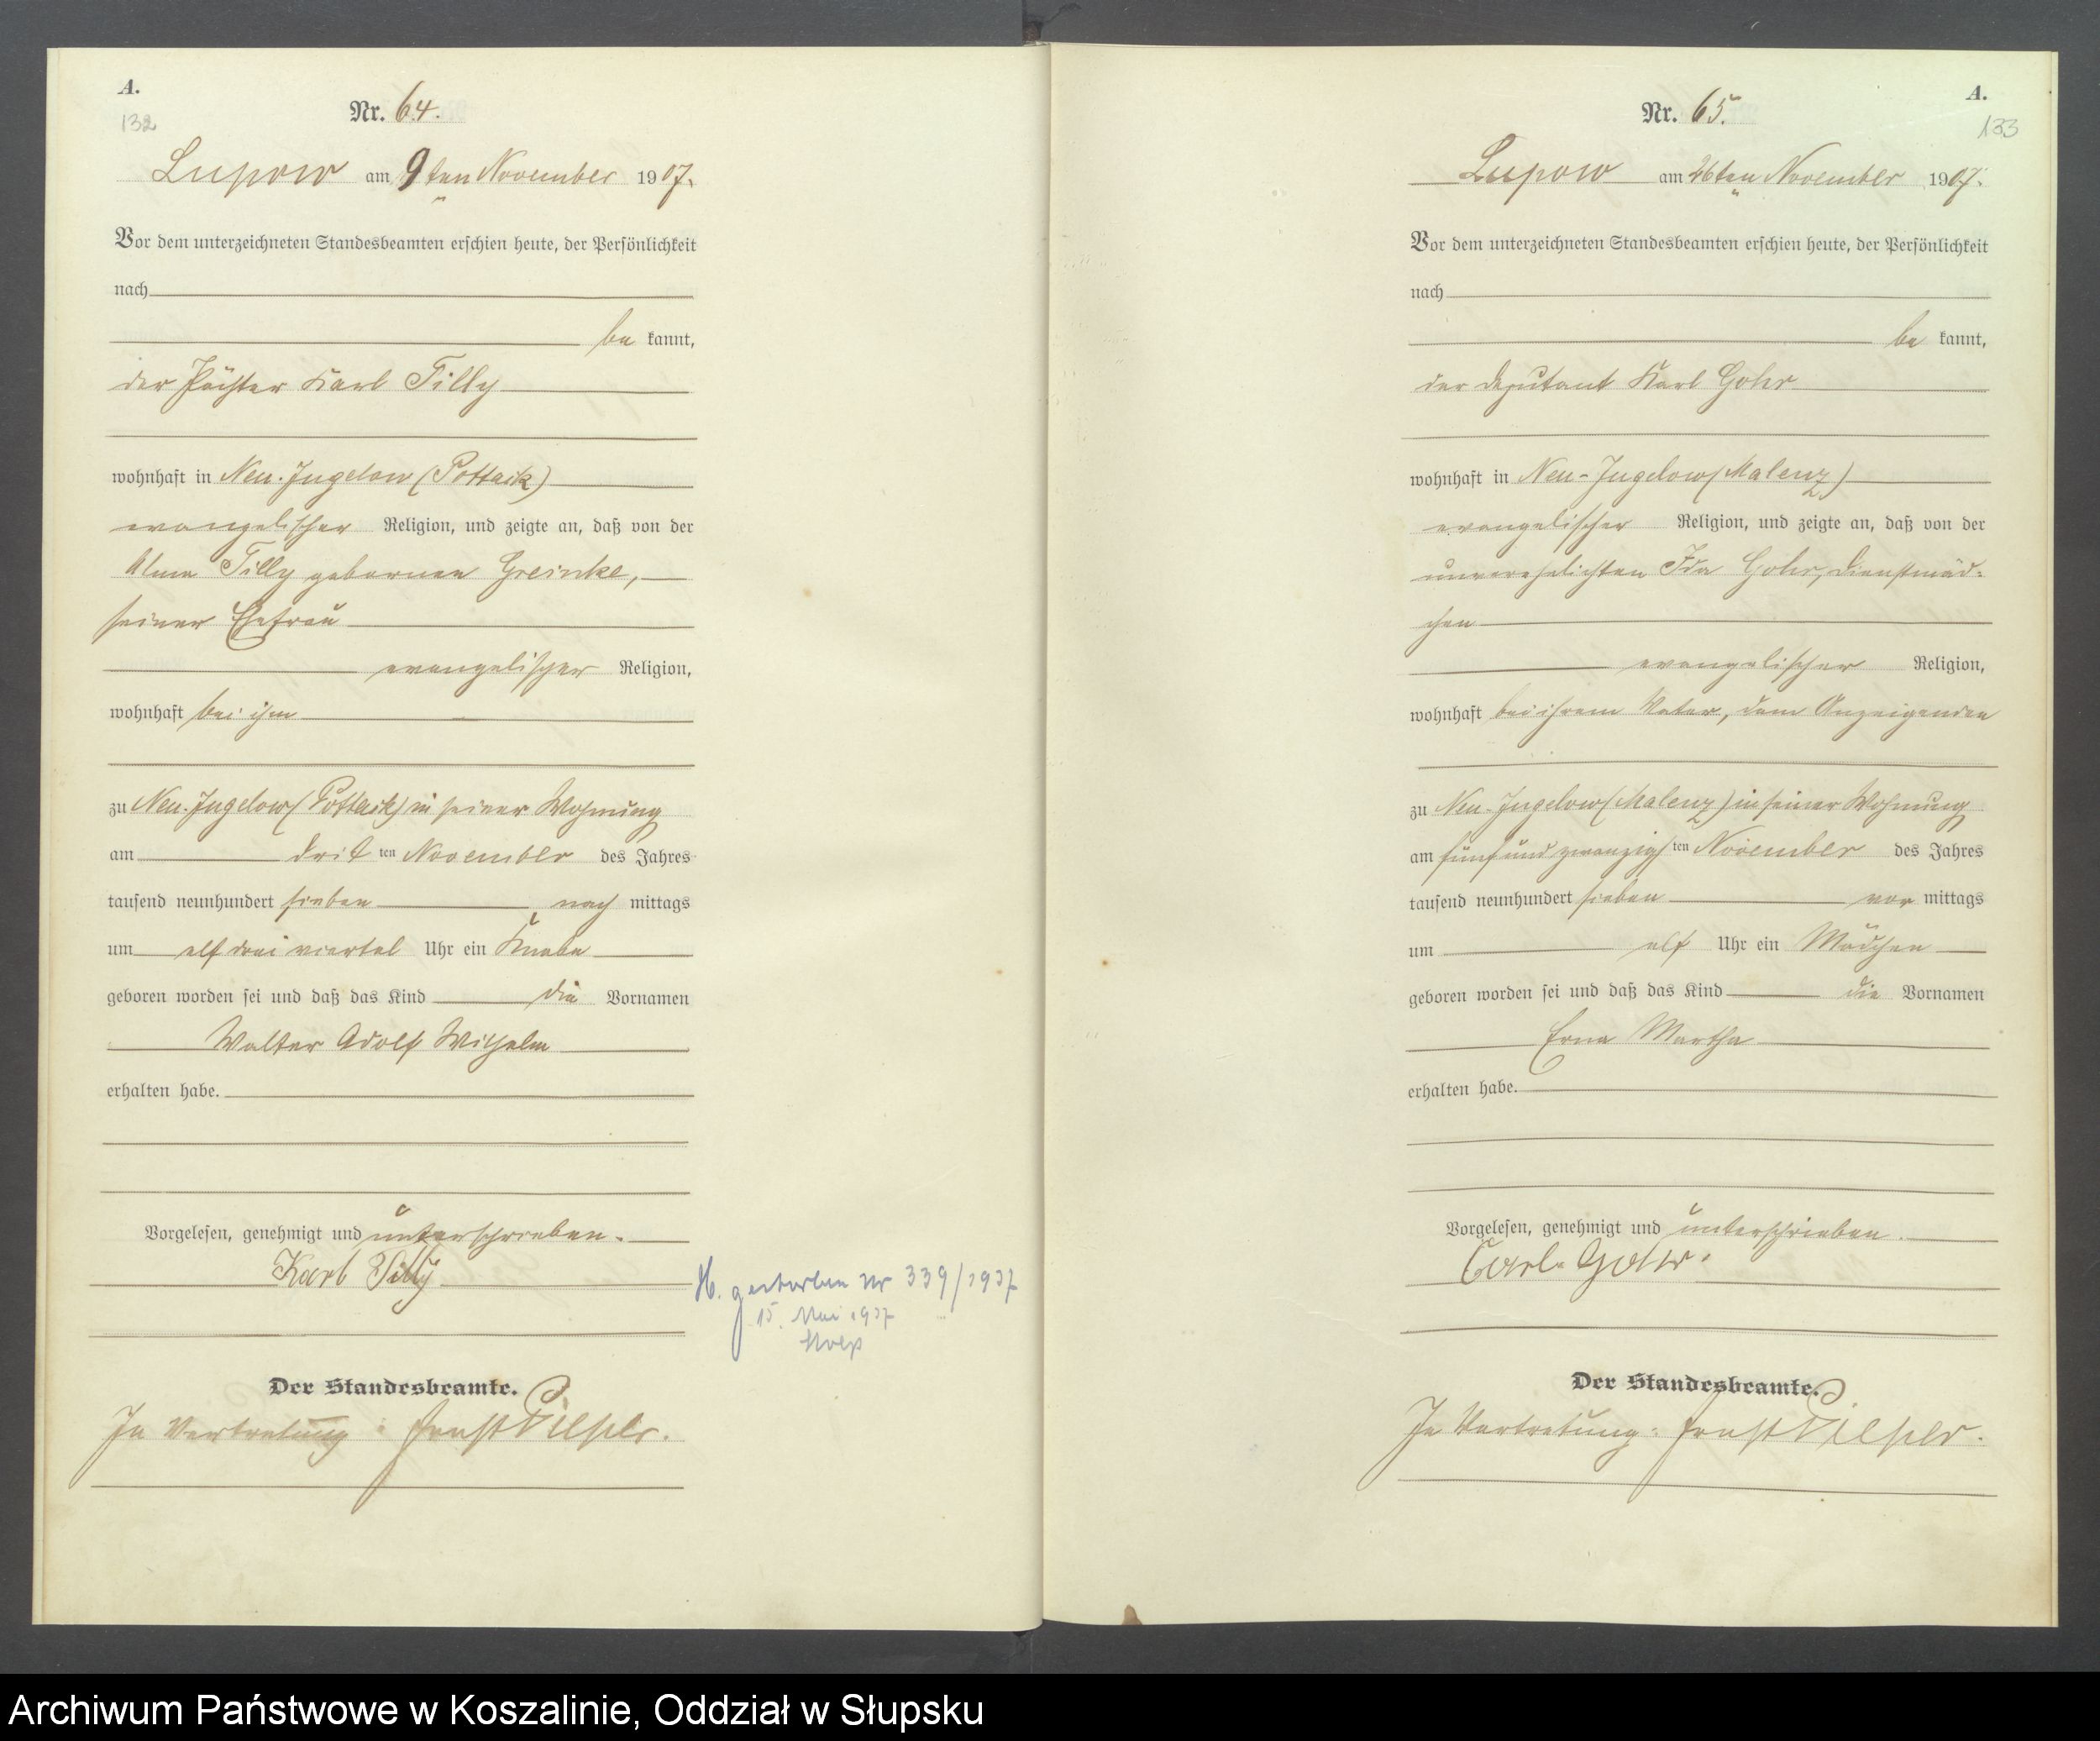 A.
132
Nr. 64.
Lupow am 9ten November 1907.
Vor dem unterzeichneten Standesbeamten erschien heute, der Persönlichkeit
nach
be kannt,
der Pächter Karl Tilly
wohnhaft in Neu-Jugelow (Pottack)
evangelischer Religion, und zeigte an, daß von der
Tilly geborenen Greinke,
seiner Ehefrau
evangelischer Religion,
wohnhaft bei ihm
zu Neu-Jugelow (Pottack) in seiner Wohnung
am dritten November des Jahres
tausend neunhundert sieben nach mittags
um elf drei viertel Uhr ein Knabe
geboren worden sei und daß das Kind die Vornamen
Walter Adolf Wilhelm
erhalten habe.
Vorgelesen, genehmigt und unterschrieben.
Karl Tilly
H. gestorben Nr 339/1937
15. Mai 1937
Stolp
Der Standesbeamte.
In Vertretung: Ernst
A.
133
Nr. 65.
Lupow am 26ten November 1907.
Vor dem unterzeichneten Standesbeamten erschien heute, der Persönlichkeit
nach
be kannt,
der Deputant Karl Gohr
wohnhaft in Neu-Jugelow (Malenz)
evangelischer Religion, und zeigte an, daß von der
unverehelichten Ida Gohr, Dienstmäd-
chen
evangelischer Religion,
wohnhaft bei ihrem Vater, dem Anzeigenden
zu Neu-Jugelow (Malenz) in seiner Wohnung
am fünfundzwanzigsten November des Jahres
tausend neunhundert sieben vor mittags
um elf Uhr ein Mädchen
geboren worden sei und daß das Kind die Vornamen
Erna Martha
erhalten habe.
Vorgelesen, genehmigt und unterschrieben.
Carl Gohr.
Der Standesbeamte.
In Vertretung: Ernst
Archiwum Państwowe w Koszalinie, Oddział w Słupsku